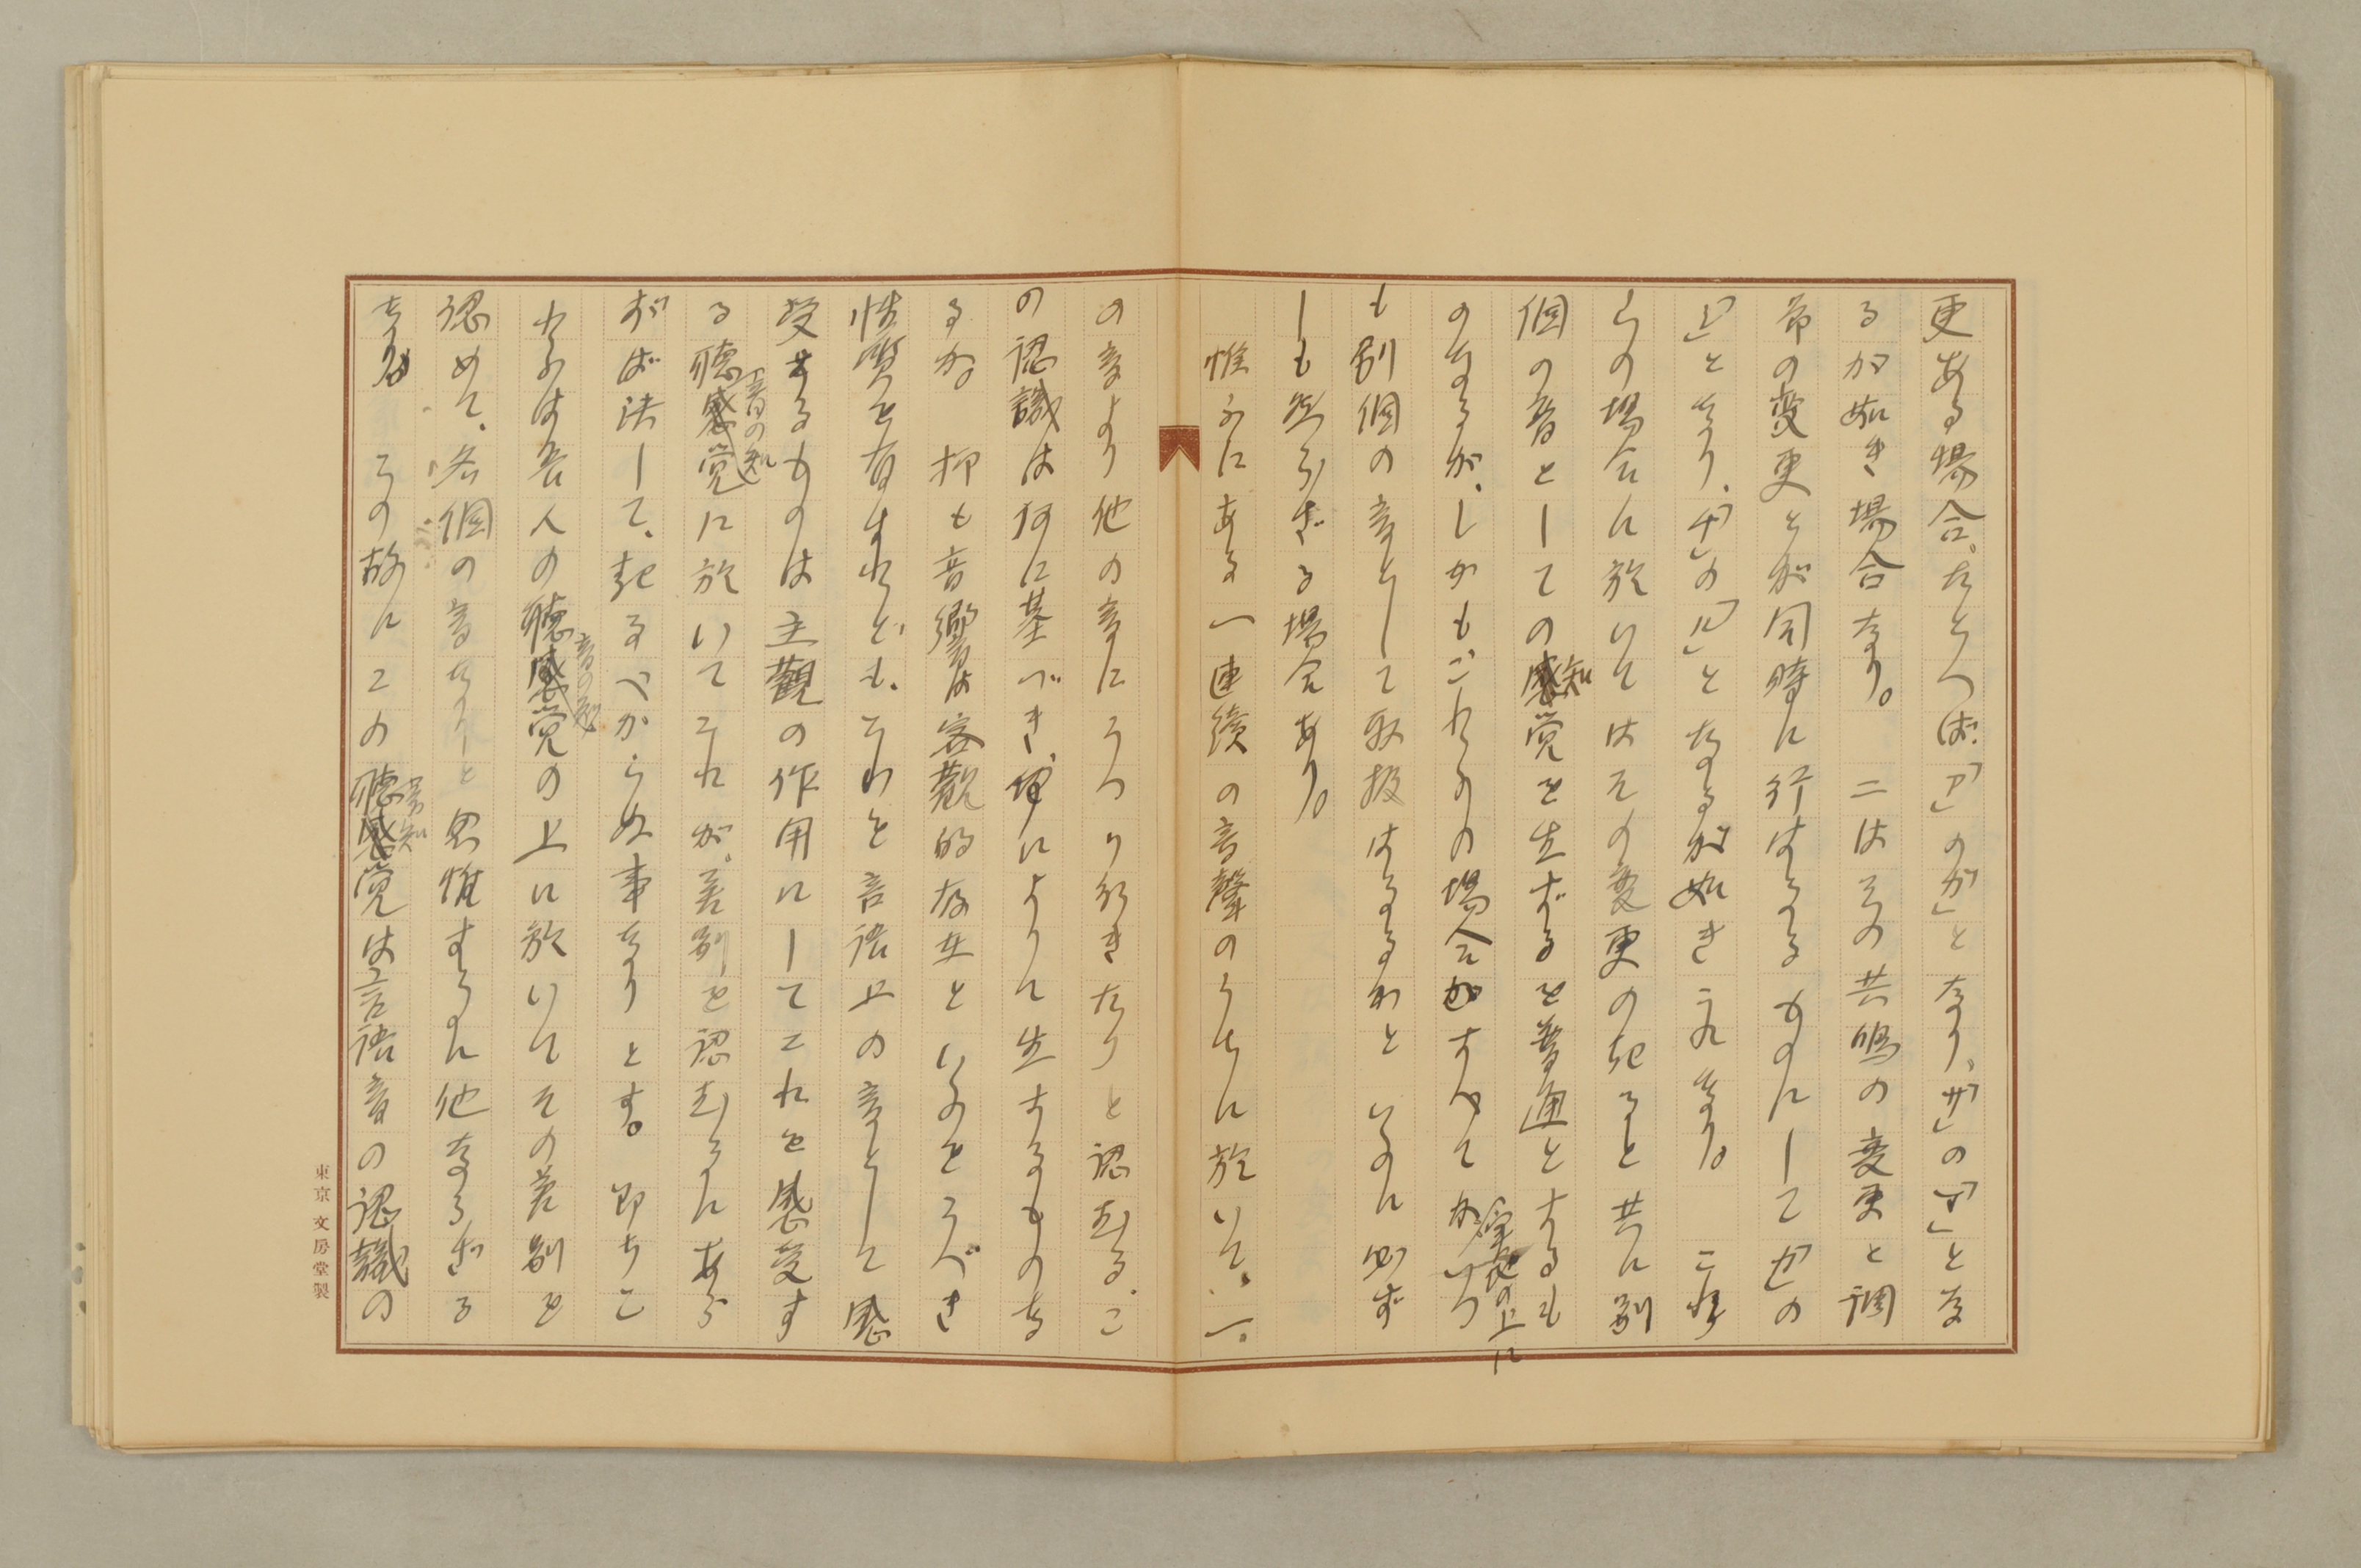 更ある場合。たとへば「ア」のが「」となり、「サ」の「」とな
るが如き場合なり。二はその共鳴の変更と調
節の変更とが同時に行はるるものにして「か」の
「」となり、「」の「」となるが如きこれなり。これ
らの場合に於いてはその変更の起ると共に別
個の音としての知覚を生ずるを普通とするも
のなるが、しかもこれらの場合すべて実地の上にかく
も別個の音として取扱はるるかといふに必ず
しも然らざる場合あり。
惟ふにある一連続の音聲のうちに於いて、一
の音より他の音にうつり行きたりと認むる、こ
の認識は何に基づき、何によりて生ずるものな
るか。抑も音響は客観的存在といふをうべき
性質を有すれども、これを言語上の音として感
受するものは主觀の作用にしてこれを感受す
る音の知覚に於いてこれが差別を認むるにあら
ずば決して起るべからぬ事なりとす。即ちこ
れらは吾人の音の知覚の上に於いてその差別を
認めて、各個の音なりと思惟するに他ならざる
なり。この故にこの音知覚は言語音の認識の
東京文房堂製